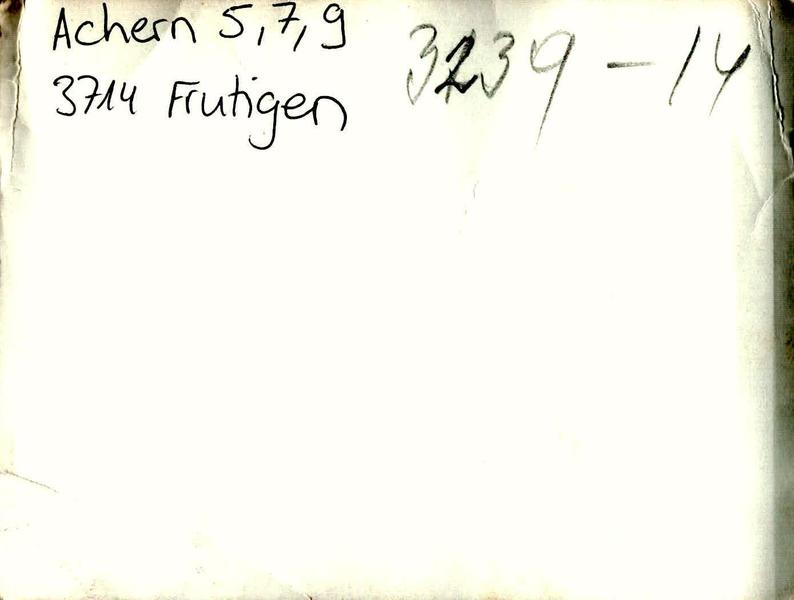 Achern 5,7,9
3714 Frutigen
3239 – 14